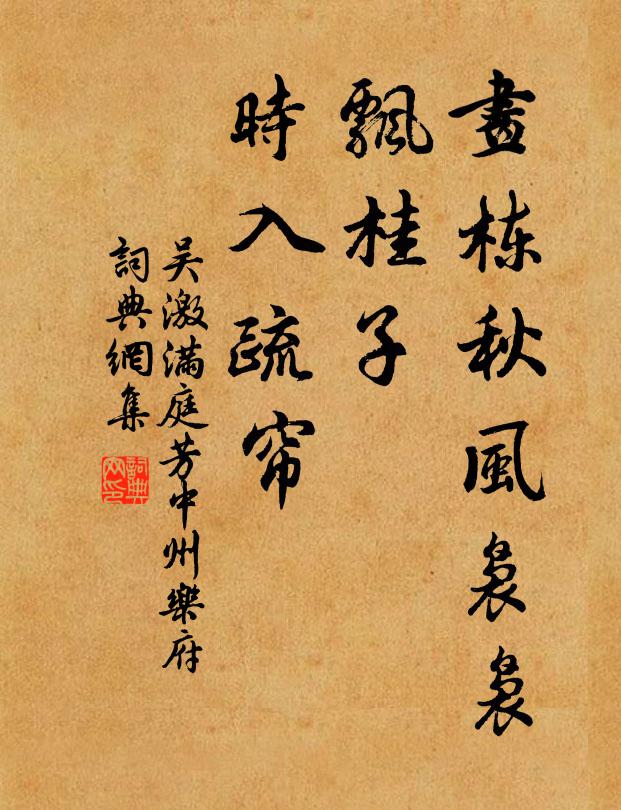 畫栋秋風裊裊
飄桂子
時入疏帘
吴激满庭芳中州樂府
詞典網集
詞典网印